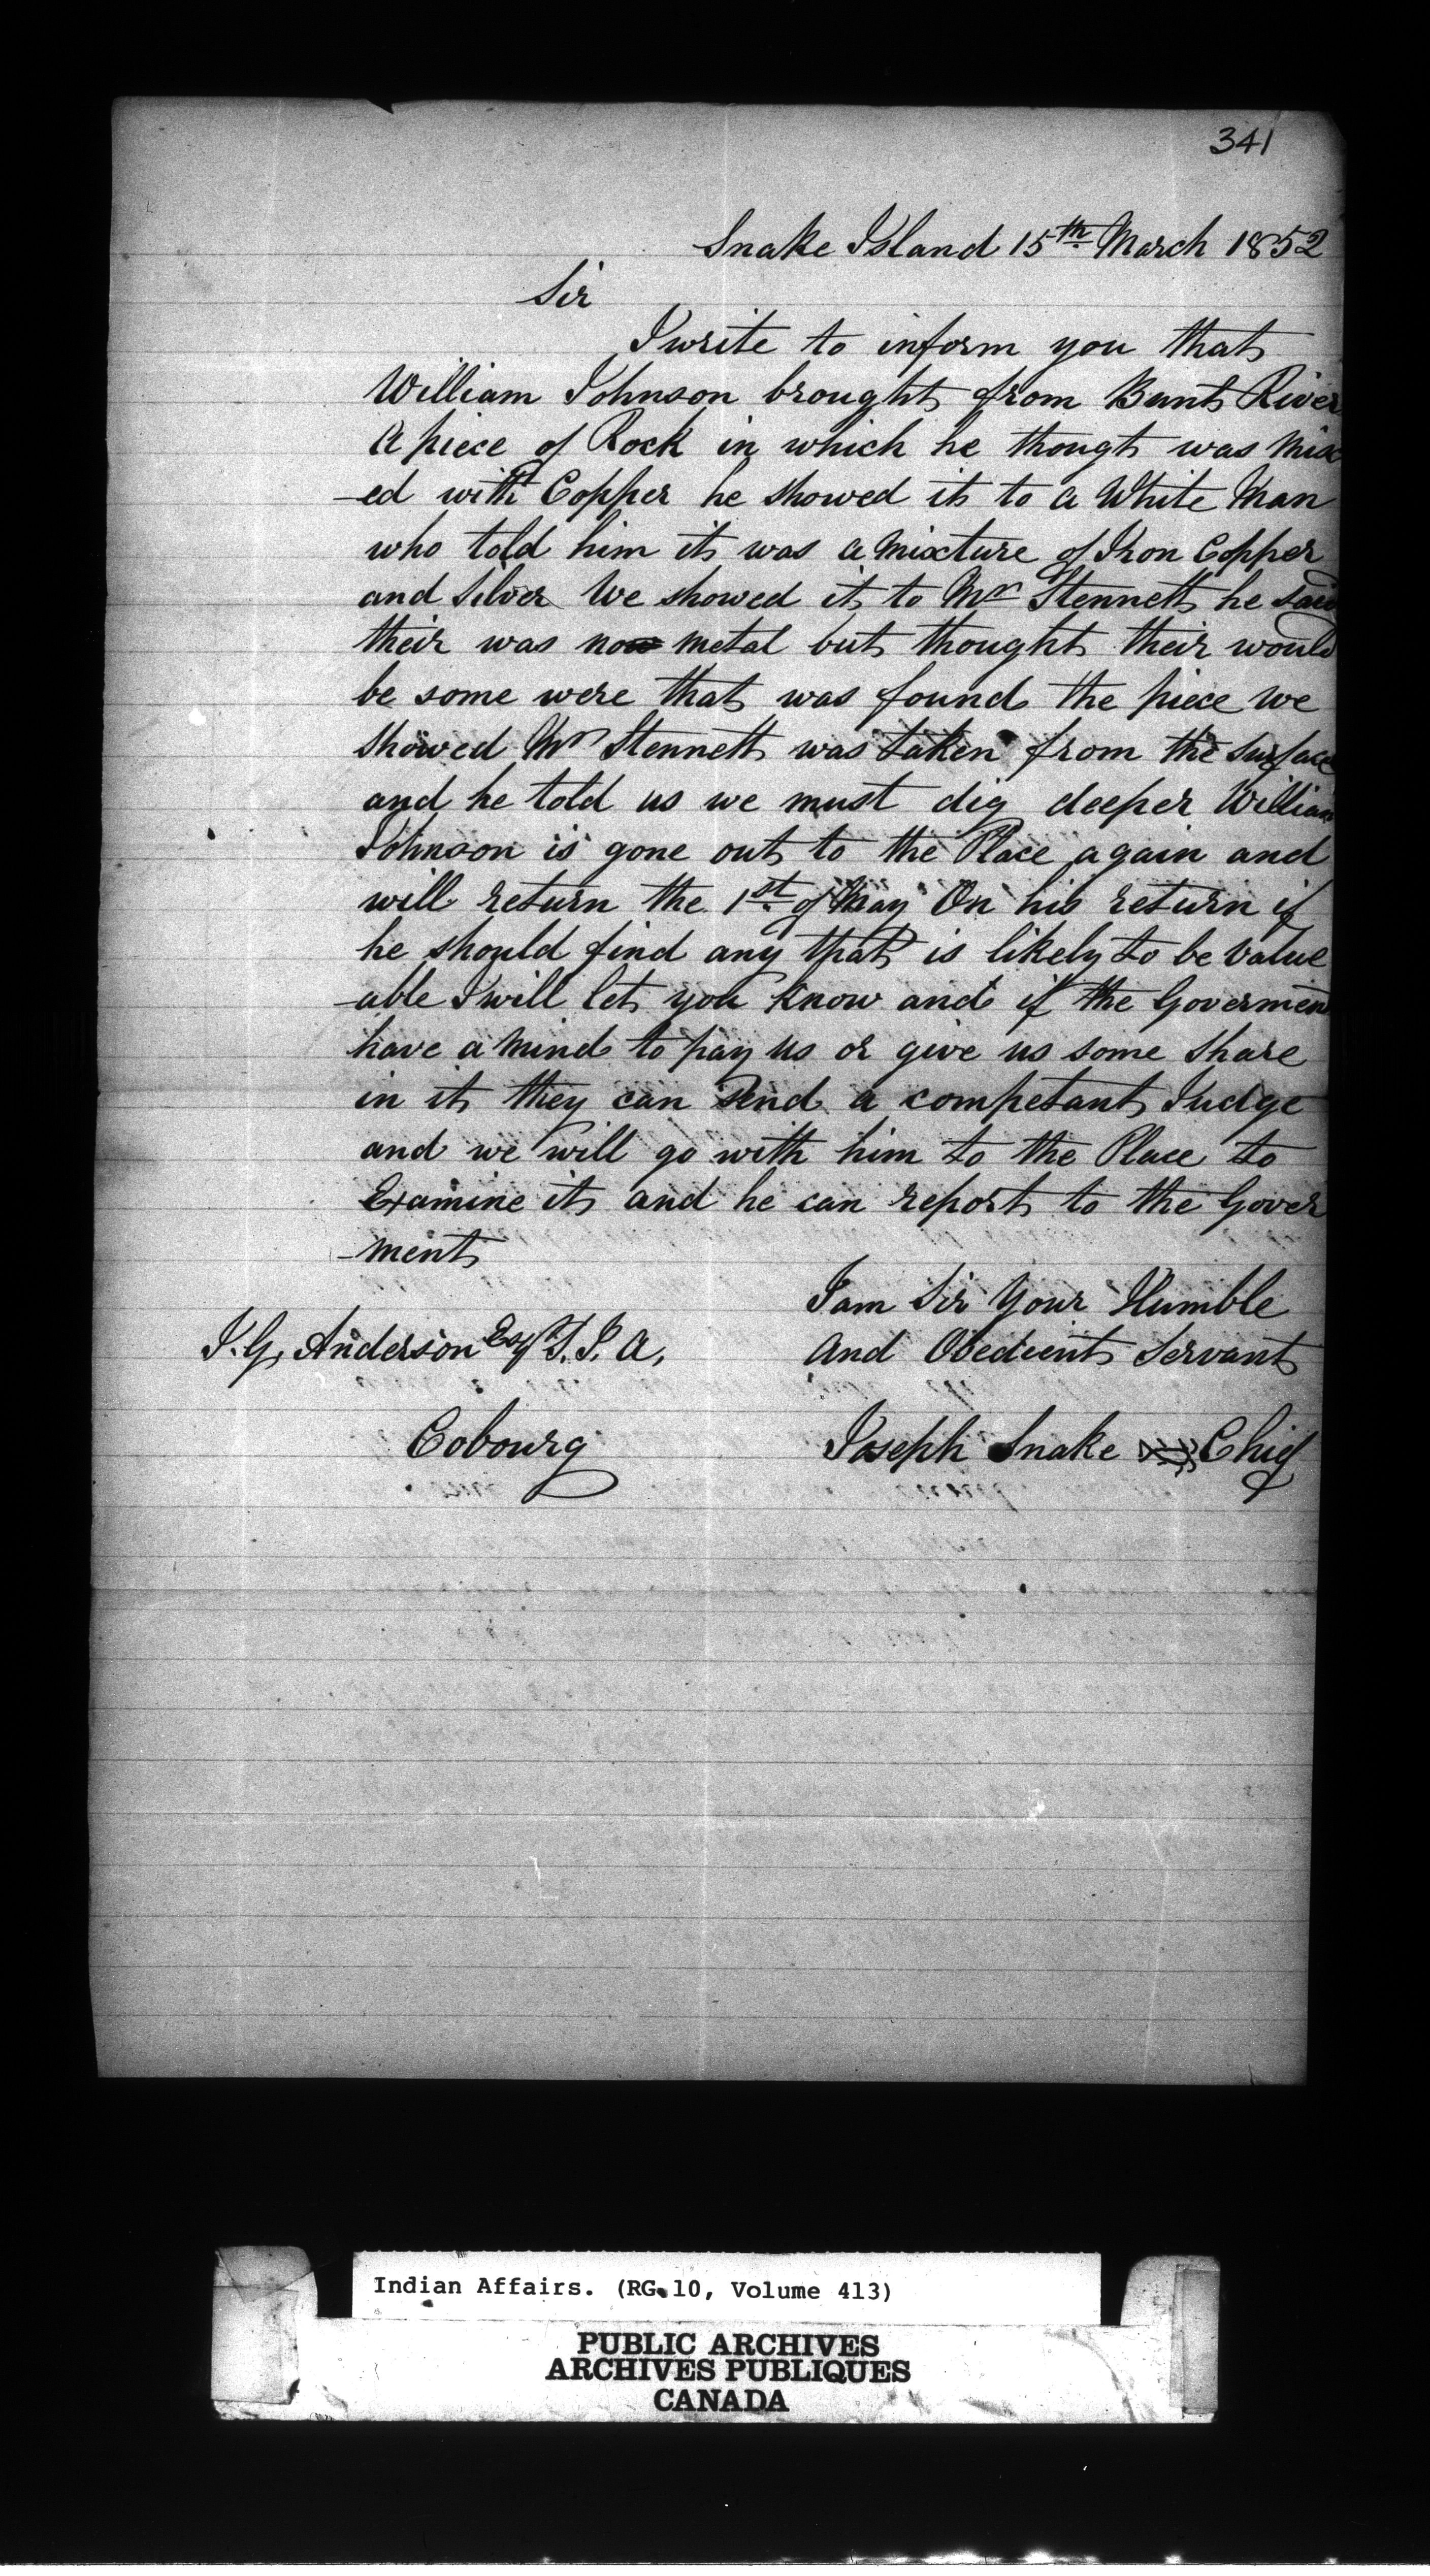 341
Snake Island 15th March 1852
Sir
I write to inform you that
William Johnson brought from Bunt River
a piece of Rock in which he thougt was mix
-ed with Copper he showed it to a White Man
who told him it was a mixture of Iron Copper
and Silver We showed it to Mr Stennett he said
their was no metal but thought their would
be some were that was found the piece we
showed Mr Stennett was taken from the surface
and he told us we must dig deeper William
Johnson is gone out to the Place again and
will return the 1st of May On his return if
he should find any that is likely to be value
-able I will let you know and if the Goverment
have a mind to pay us or give us some share
in it they can send a competant Judge
and we will go with him to the Place to
Examine it and he can report to the Gover
-ment
I am Sir Your Humble
And Obedient Servant
J. G. Anderson Esqr S. I. A.
Cobourg
Joseph Snake Chief
Indian Affairs. (RG 10, Volume 413)
PUBLIC ARCHIVES
ARCHIVES PUBLIQUES
CANADA